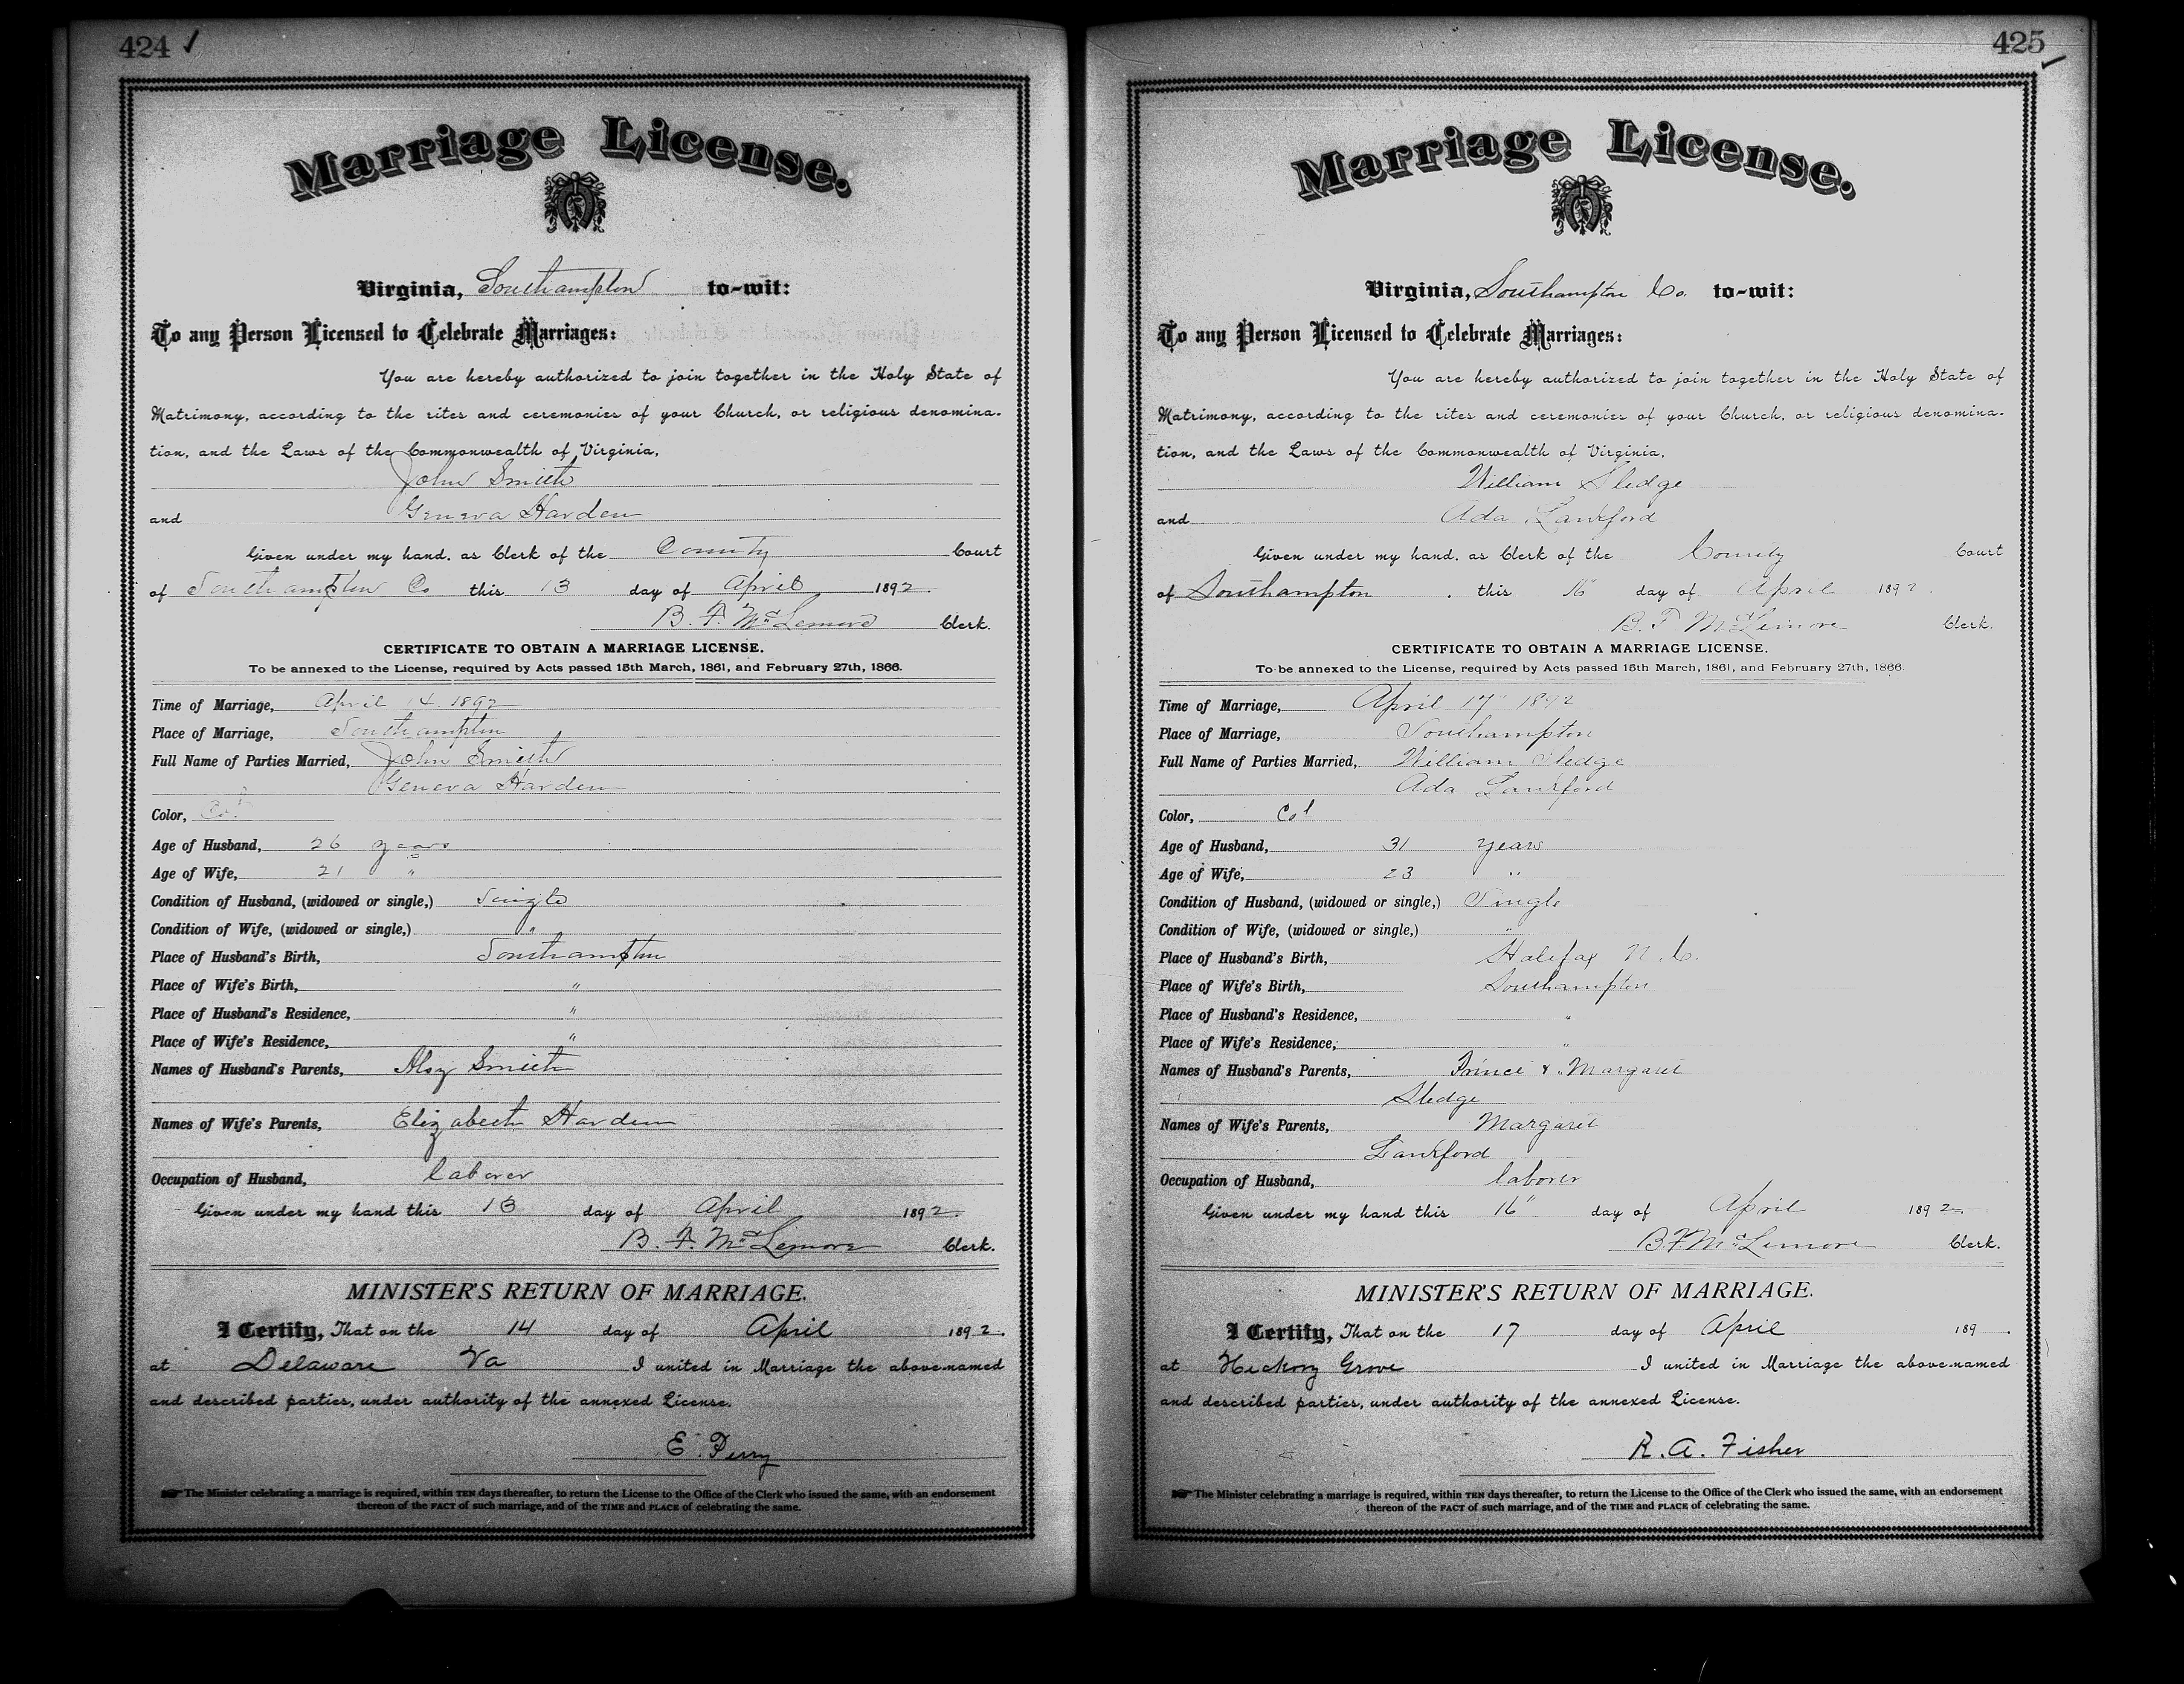 424
Marriage License.
Virginia, Southampton to-wit:
To any Person Licensed to Celebrate Marriages:
You are hereby authorized to join together in the Holy State of
Matrimony, according to the rites and ceremonies of your Church, or religious denomina-
tion, and the Laws of the Commonwealth of Virginia,
John Smith
and Geneva Harden
Given under my hand, as Clerk of the County Court
of Southampton Co this 13 day of April 1892.
B. F. McLemore Clerk.
CERTIFICATE TO OBTAIN A MARRIAGE LICENSE.
To be annexed to the License, required by Acts passed 15th March, 1861, and February 27th, 1866.
Time of Marriage, April 14 1892
Place of Marriage, Southampton
Full Name of Parties Married, John Smith
Geneva Harden
Color, Col
Age of Husband, 26 years
Age of Wife, 21 "
Condition of Husband, (widowed or single,) Single
Condition of Wife, (widowed or single,) "
Place of Husband's Birth, Southampton
Place of Wife's Birth, "
Place of Husband's Residence, "
Place of Wife's Residence, "
Names of Husband's Parents, Smith
Names of Wife's Parents, Elizabeth Harden
Occupation of Husband, laborer
Given under my hand this 13 day of April 1892.
B. F. McLemore Clerk.
MINISTER'S RETURN OF MARRIAGE.
I Certify, That on the 14 day of April 1892.
at Delaware Va I united in Marriage the above-named
and described parties, under authority of the annexed License.
E. Perry
The Minister celebrating a marriage is required, within TEN days thereafter, to return the License to the Office of the Clerk who issued the same, with an endorsement
thereon of the FACT of such marriage, and of the TIME and PLACE of celebrating the same.
425
Marriage License.
Virginia, Southampton Co. to-wit:
To any Person Licensed to Celebrate Marriages:
You are hereby authorized to join together in the Holy State of
Matrimony, according to the rites and ceremonies of your Church, or religious denomina-
tion, and the Laws of the Commonwealth of Virginia,
William Sledge
and Ada Lankford
Given under my hand, as Clerk of the County Court
of Southampton this 16" day of April 1892.
B. F. McLemore Clerk.
CERTIFICATE TO OBTAIN A MARRIAGE LICENSE.
To be annexed to the License, required by Acts passed 15th March, 1861, and February 27th, 1866.
Time of Marriage, April 17" 1892
Place of Marriage, Southampton
Full Name of Parties Married, William Sledge
Ada Lankford
Color, Col
Age of Husband, 31 years
Age of Wife, 23 "
Condition of Husband, (widowed or single,) Single
Condition of Wife, (widowed or single,) "
Place of Husband's Birth, Halifax N.C.
Place of Wife's Birth, Southampton
Place of Husband's Residence, "
Place of Wife's Residence, "
Names of Husband's Parents, Prince & Margaret
Sledge
Names of Wife's Parents, Margaret
Lankford
Occupation of Husband, laborer
Given under my hand this 16" day of April 1892.
B.F. McLemore Clerk.
MINISTER'S RETURN OF MARRIAGE.
I Certify, That on the 17 day of April 189 .
at Hickory Grove I united in Marriage the above-named
and described parties, under authority of the annexed License.
R. A. Fisher
The Minister celebrating a marriage is required, within TEN days thereafter, to return the License to the Office of the Clerk who issued the same, with an endorsement
thereon of the FACT of such marriage, and of the TIME and PLACE of celebrating the same.